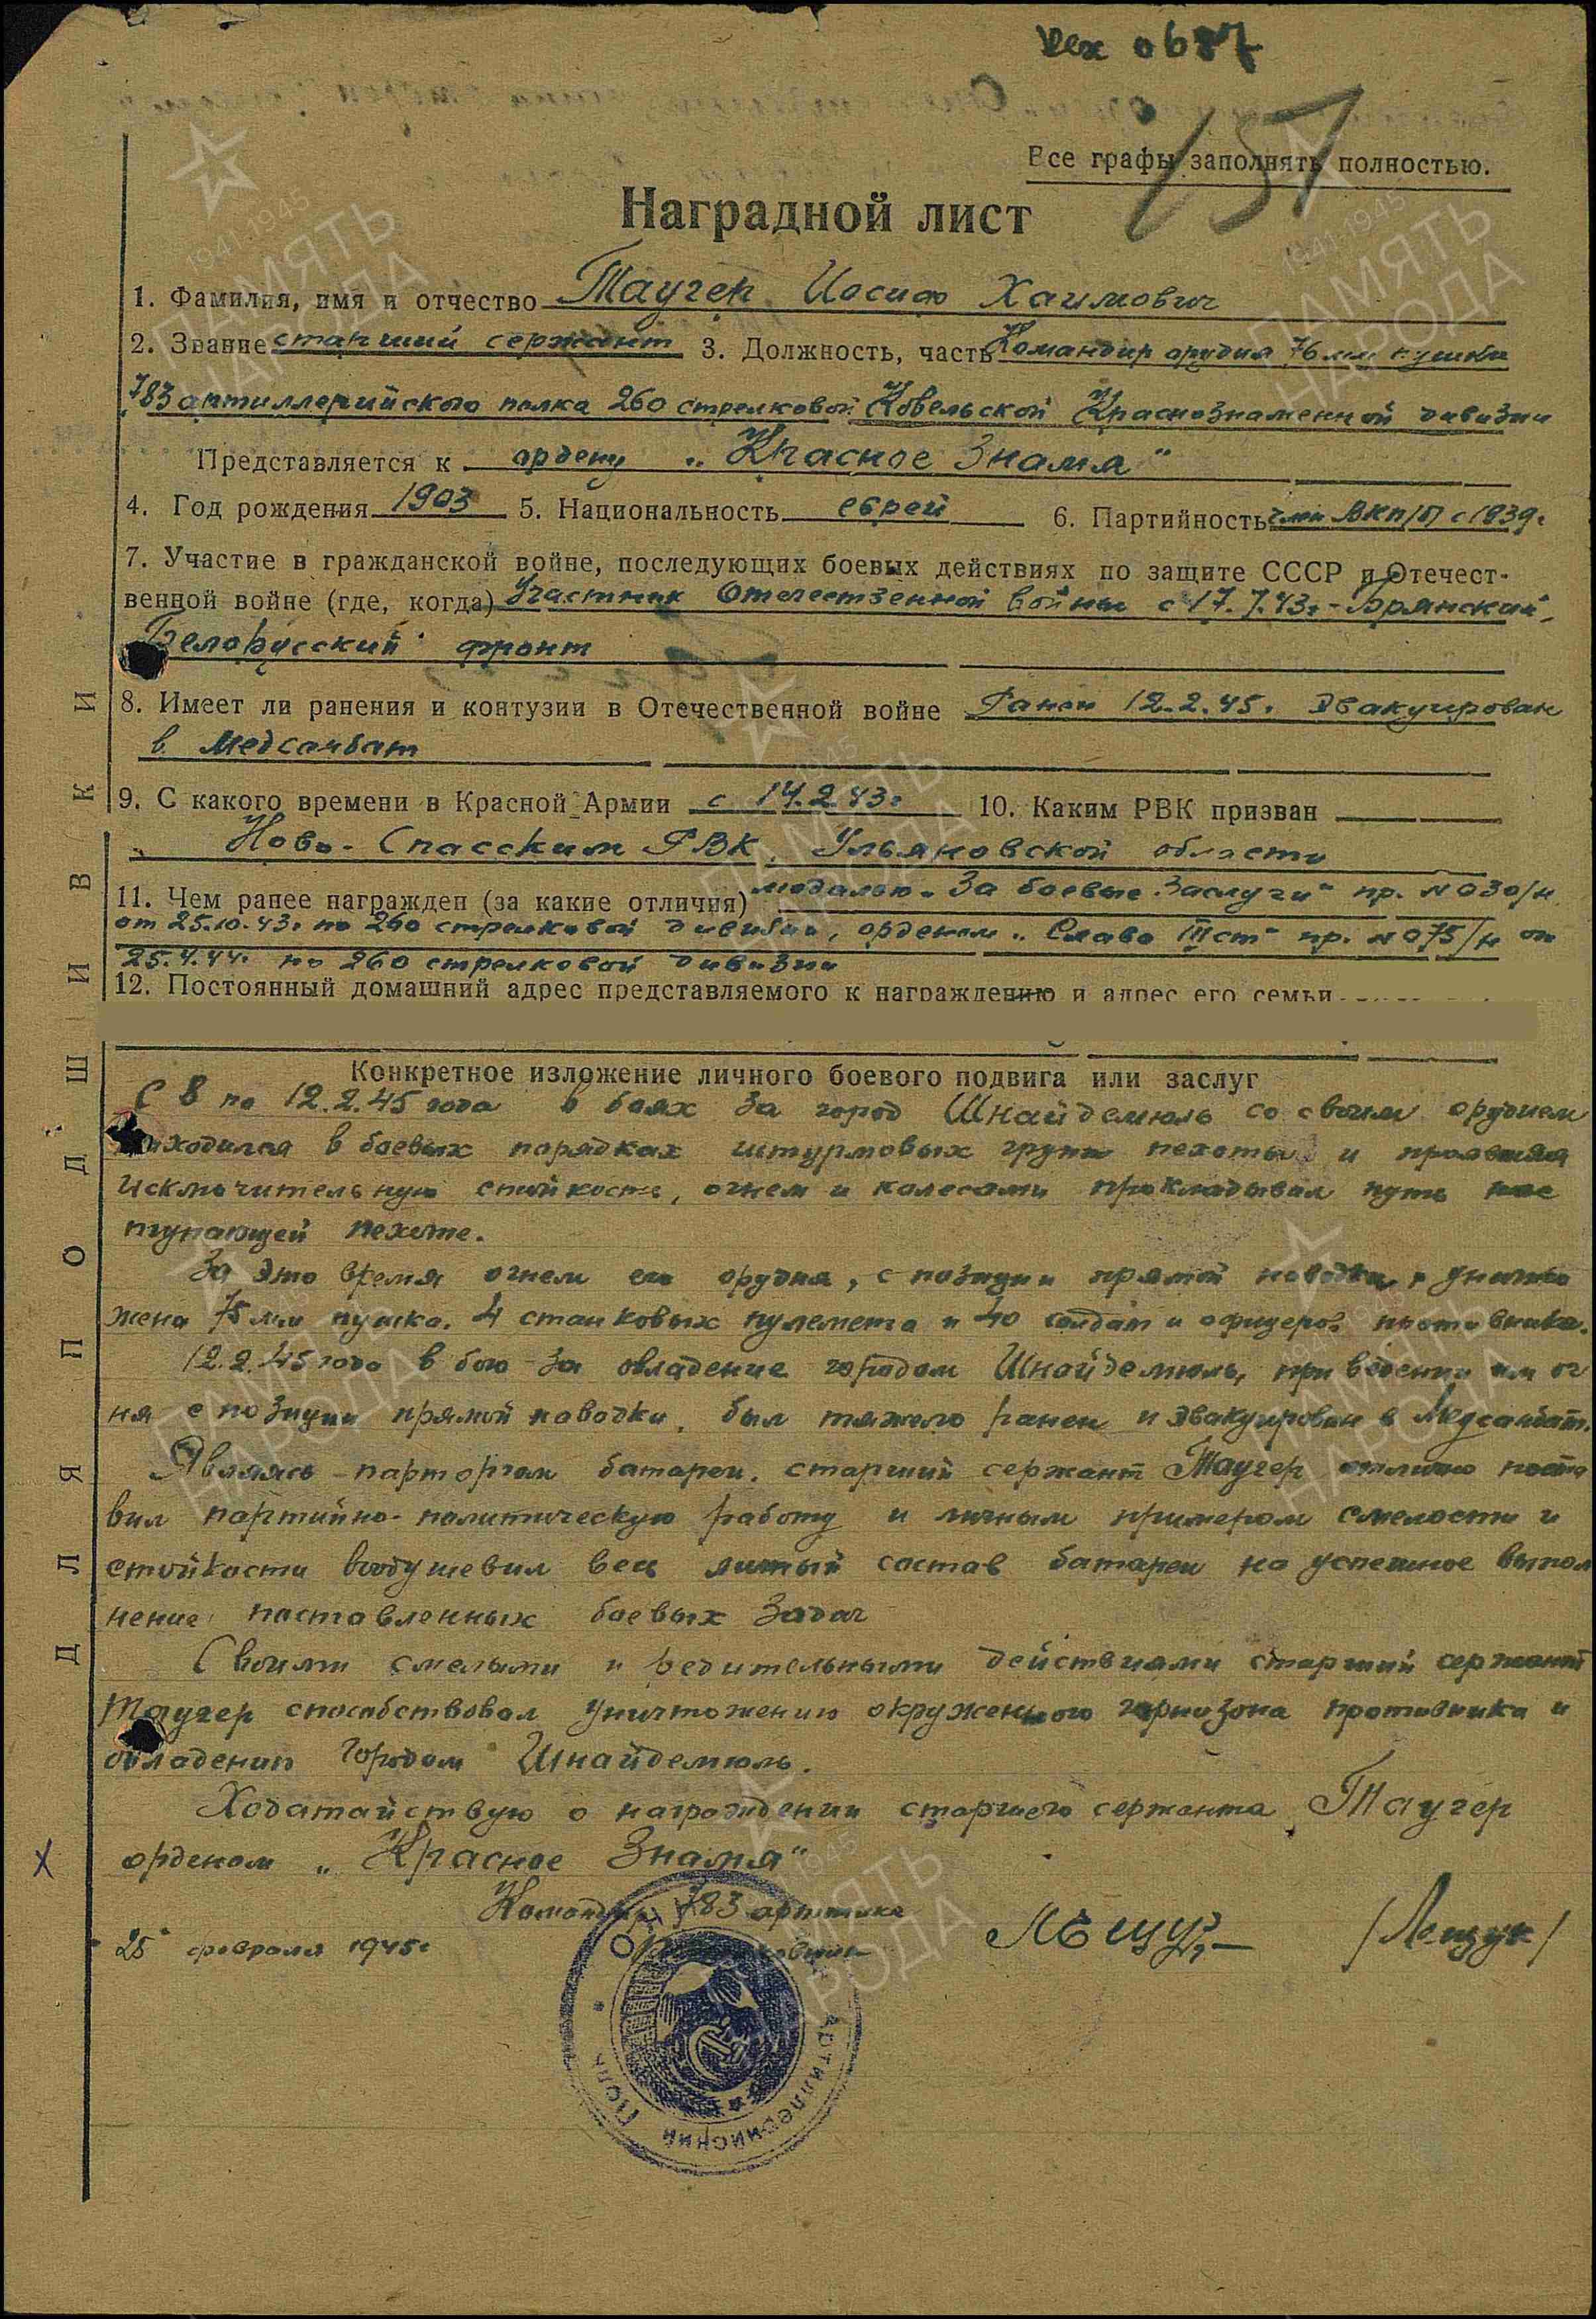 Вх 0687
157
Все графы заполнять полностью.
Наградной лист
1. Фамилия, имя и отчество Таугер Иосиф Хаимович
2. Звание старший сержант 3. Должность, часть Командир орудия 76 мм пушки
783 артиллерийского полка 260 стрелковой Ковельской Краснознаменной дивизии
Представляется к ордену „Красное Знамя"
4. Год рождения 1903 5. Национальность еврей 6. Партийность член ВКП/б/ с 1939г.
7. Участие в гражданской войне, последующих боевых действиях по защите СССР и Отечест-
венной войне (где, когда) Участник Отечественной войны с 17.7.43г - Брянский,
Белорусский фронт
8. Имеет ли ранения и контузии в Отечественной войне Ранен 12.2.45. Эвакуирован
в Медсанбат
9. С какого времени в Красной Армии с 14.2.43г 10. Каким РВК призван
Ново-Спасским РВК, Ульяновской области
11. Чем ранее награжден (за какие отличия) медалью „За боевые заслуги" пр. №030/н
от 25.10.43г по 260 стрелковой дивизии, орденом „Слава III ст" пр. №075/н от
25.4.44г. по 260 стрелковой дивизии
12. Постоянный домашний адрес представляемого к награждению и адрес его семьи
Конкретное изложение личного боевого подвига или заслуг
С 8 по 12.2.45 года в боях за город Шнайдемюль со своим орудием
находился в боевых порядках штурмовых групп пехоты и проявляя
исключительную стойкость, огнем и колесами прокладывал путь нас
тупающей пехоте.
За это время огнем его орудия, с позиции прямой наводки, уничто
жена 75 мм пушка, 4 станковых пулемета и 40 солдат и офицеров противника.
12.2.45 года в бою за овладение городом Шнайдемюль, при ведении им ог
ня с позиции прямой наводки, был тяжело ранен и эвакуирован в Медсанбат.
Являясь парторгом батареи, старший сержант Таугер отлично поста
вил партийно-политическую работу и личным примером смелости и
стойкости воодушевил весь личный состав батареи на успешное выпол
нение поставленных боевых задач
Своими смелыми и решительными действиями старший сержант
Таугер способствовал уничтожению окруженного гарнизона противника и
овладению городом Шнайдемюль.
Ходатайствую о награждении старшего сержанта Таугер
орденом „Красное Знамя"
Командир 783 артполка
25 февраля 1945г. Лещук /Лещук/
Артиллерийский Полк
ДЛЯ ПОДШИВКИ
1941-1945
ПАМЯТЬ
НАРОДА